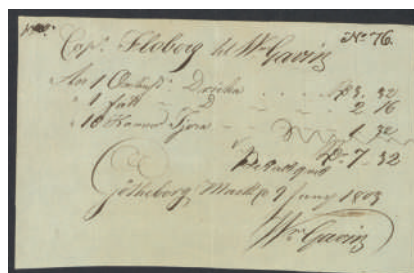 No 76.
Capt. Floberg till Wm Gavin
An 1 Oxhufd: Dricka - - Rd 3. 32
" 1 fatt - D - - - 2 16
" 16 Kannor Tjera - - - 1 32
Rd. 7. 32
Betalt
Götheborg 9 Juny 1803
Wm Gavin